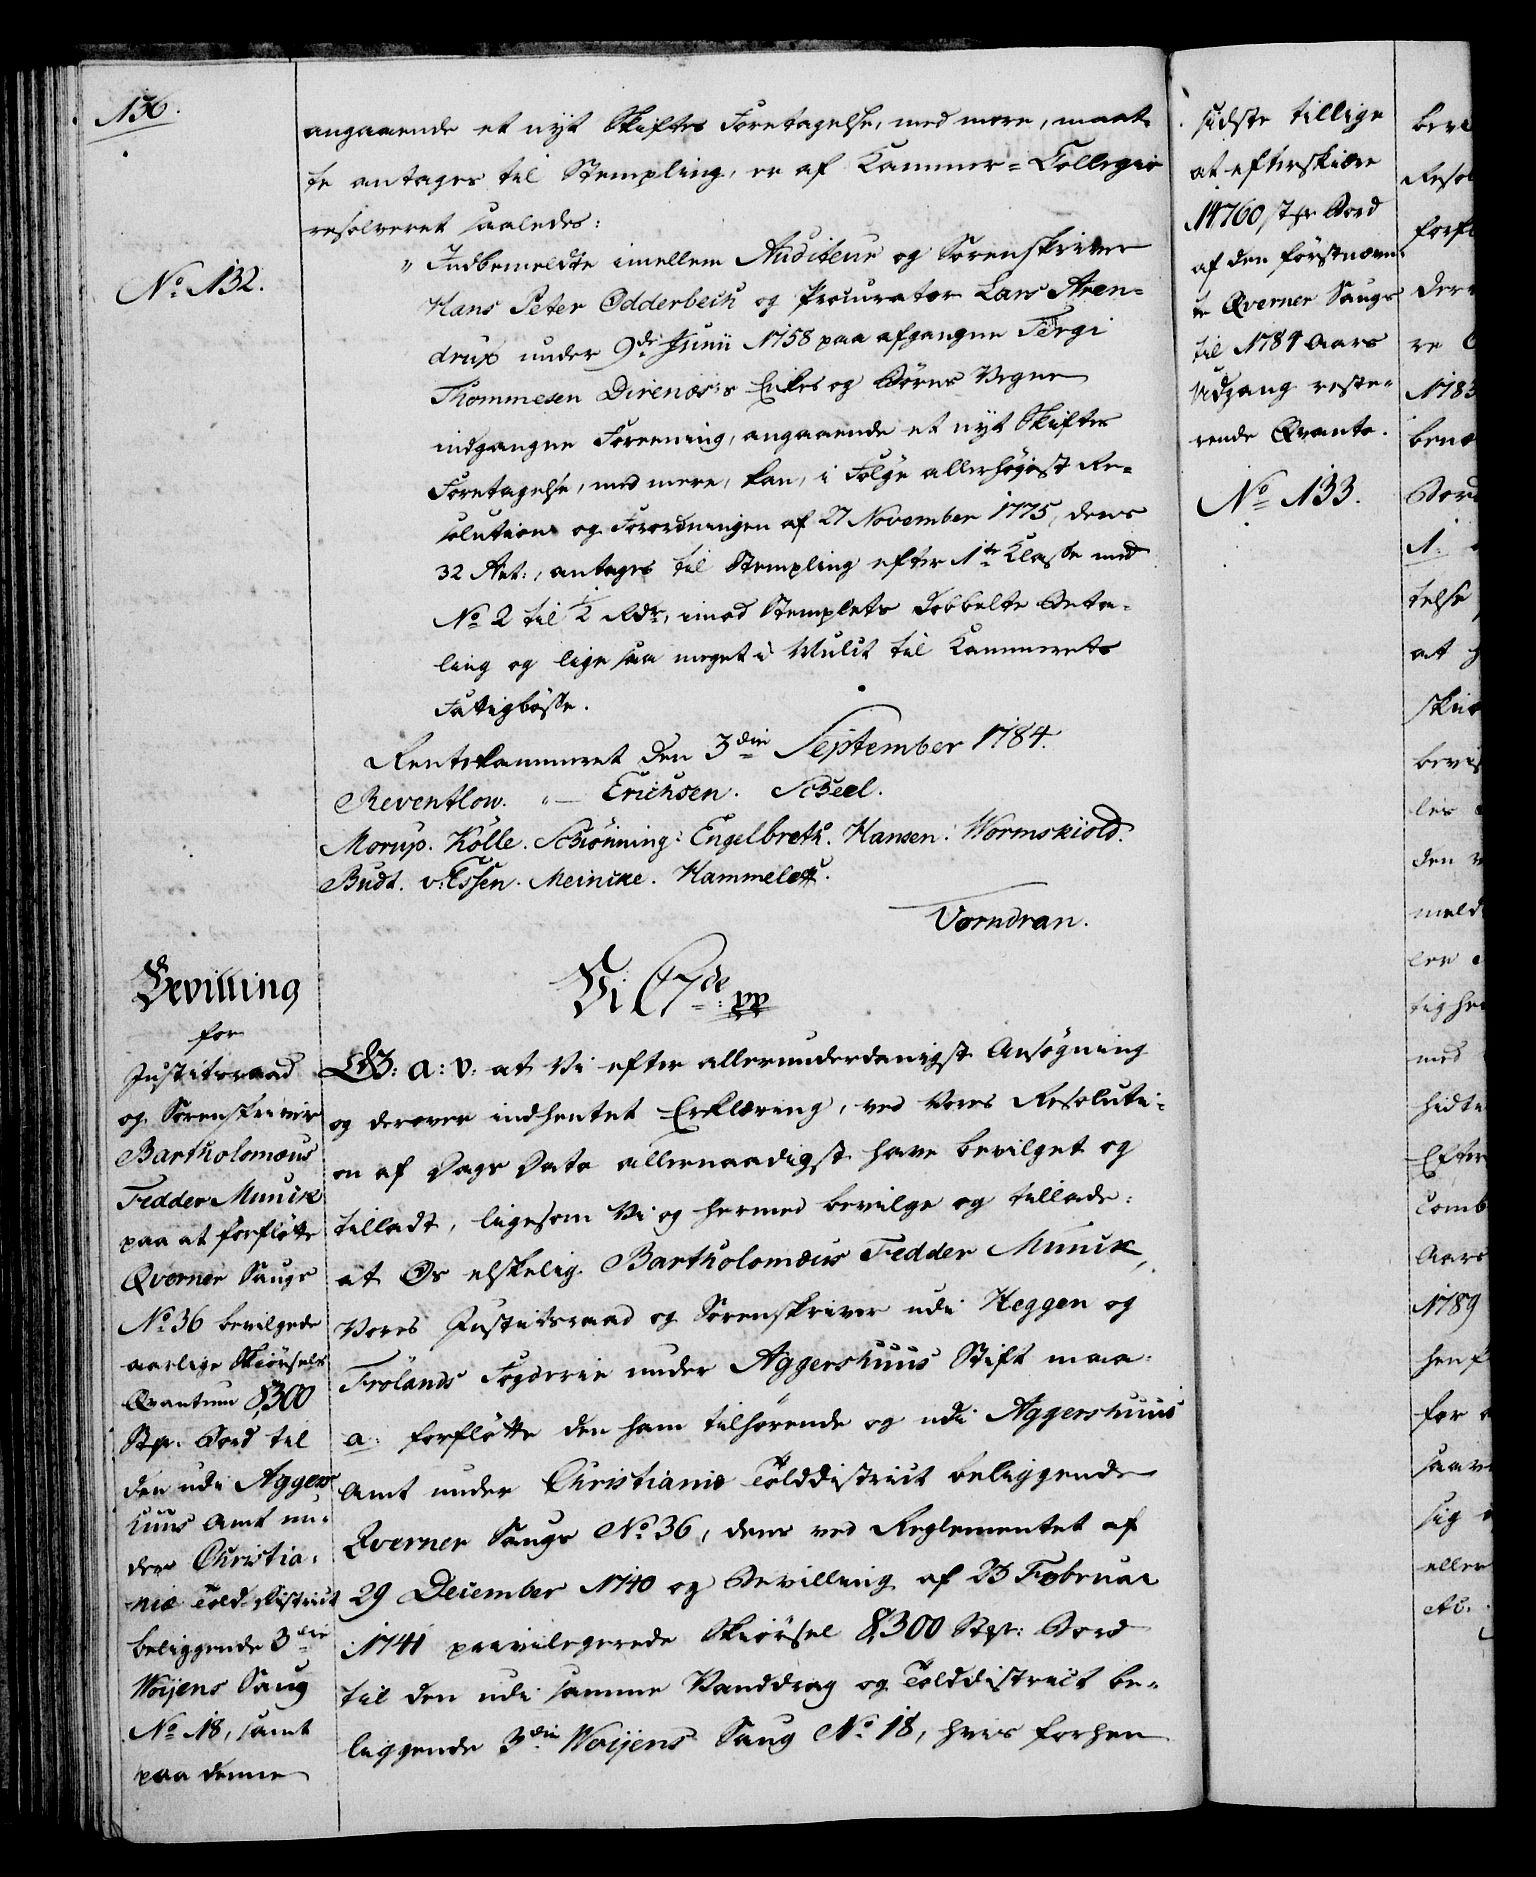 136.
angaaende et nyt Skiftes Foretagelse, med mere, maat-
te antages til Stempling, er af Kammer-Collegio
resolveret saaledes:
No 132.
" Indbemeldte imellem Auditeur og Sorenskriver
Hans Peter Odderbech og Procurator Lars Aren-
drup under 9de Junii 1758 paa afgangne Tergi
Thommesen Direnæs's Enkes og Børns Vegne
indgangne Foreening, angaaende et nyt Skiftes
Foretagelse, med mere, kan, i Følge allerhøjest Re-
solution og Forordningen af 27 November 1775, dens
32 Art:, antages til Stempling efter 1te Klasse med
No 2 til ½ Rdr, imod Stemplets dobbelte Beta-
ling og lige saa meget i Mulct til Kammerets
Fatigbøsse.
Rentekammeret den 3die September 1784.
Reventlow. " — Erichsen. Scheel.
Morup. Kölle. Schiønning. Engelbreth. Hansen. Wormskiold.
Budt. v. Essen. Meincke. Hammeleff.
Vorndran.
Bevilling
for
Justitsraad
og Sorenskriver
Bartholomæus
Fedder Munck
paa at forflötte
Qverner Saugs
No 36 bevilgede
aarlige Skiörsels
Qvantum 8,300
Stpr. Bord til
den udi Aggers
huus Amt un-
der Christia-
niæ Told-District
beliggende 3die
Woijens Saug
No 18, samt
paa denne
Vi C 7de: pp
G: a: v: at Vi efter allerunderdanigst Ansøgning
og derover indhentet Erklæring, ved Vores Resoluti-
on af Dags Dato allernaadigst have bevilget og
tilladt, ligesom Vi og hermed bevilge og tillade:
at Os elskelig Bartholomæus Fedder Munck,
Vores Justitsraad og Sorenskriver udi Heggen og
Frölands Fogderie under Aggershuus Stift maa:
a. forflötte den ham tilhørende og udi Aggershuus
Amt under Christianiæ Tolddistrict beliggende
Qverner Saugs No 36, dens ved Reglementet af
29 December 1740 og Bevilling af 23 Februar
1741 privilegerede Skiörsel 8,300 Stpr: Bord
til den udi samme Vanddrag og Tolddistrict be-
liggende 3die Woijens Saug No 18, hvis forhen
sidste tillige
at efterskiære
14760 Stpr Bord
af den førstnævn-
te Qverner Saugs
til 1784 Aars
Udgang reste-
rende Qvanto.
No 133.